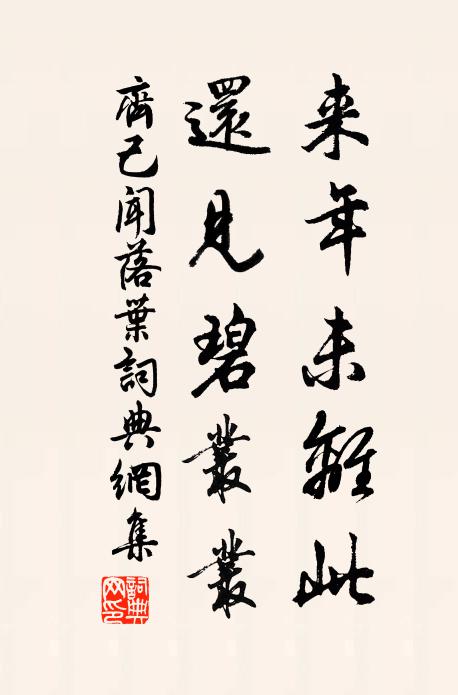 来年未離此
還見碧叢叢
齊己聞落葉詞典網集
詞典网印